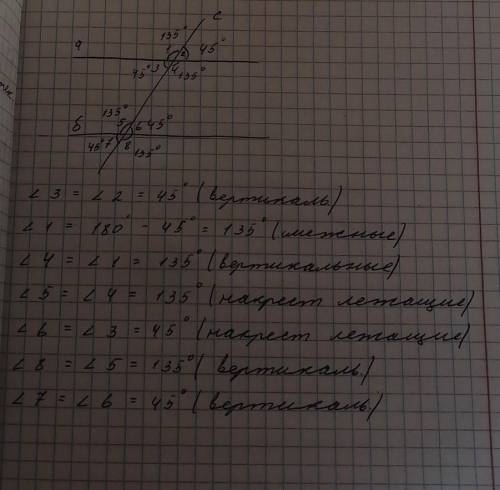 c
135°
а 1 2 45°
45° 3 4 135°
135°
б 5 6 45°
45° 7 8 135°
∠3 = ∠2 = 45° (вертикаль)
∠1 = 180° - 45° = 135° (смежные)
∠4 = ∠1 = 135° (вертикальные)
∠5 = ∠4 = 135° (накрест лежащие)
∠6 = ∠3 = 45° (накрест лежащие)
∠8 = ∠5 = 135° (вертикаль.)
∠7 = ∠6 = 45° (вертикаль.)